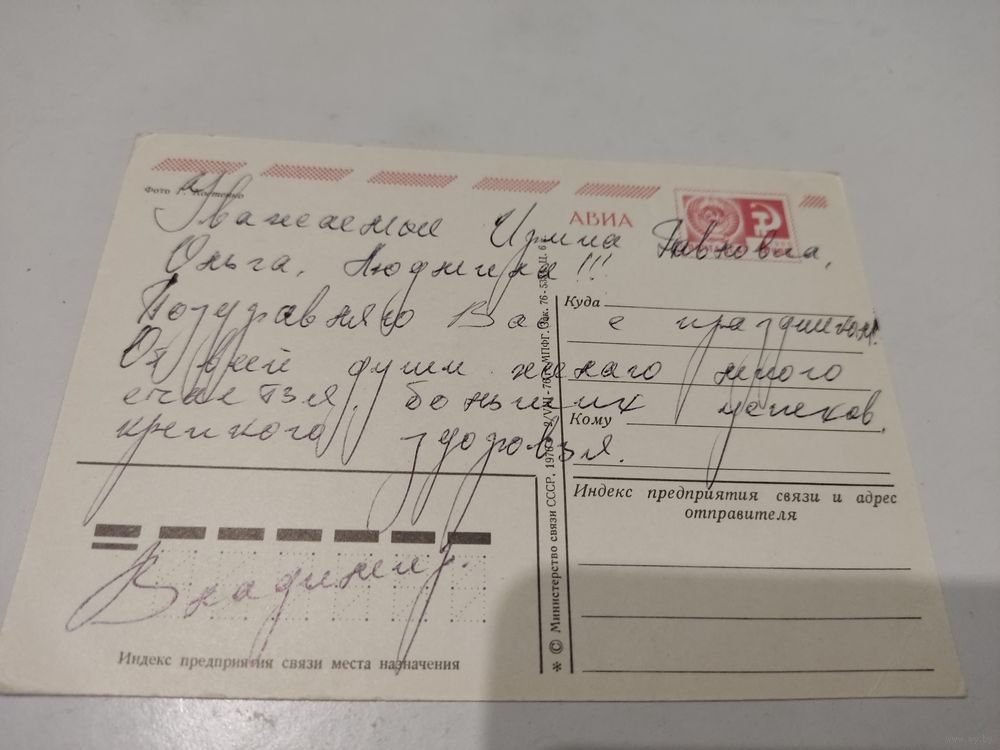 Фото Г. Костенко
АВИА
Уважаемые Ирина Павловна,
Ольга, Людмила!!!
Поздравляю Вас с праздником!
От всей души желаю много
счастья, больших успехов,
крепкого здоровья.
Владимир.
Куда
Кому
Индекс предприятия связи и адрес
отправителя
Индекс предприятия связи места назначения
* © Министерство связи СССР, 1976